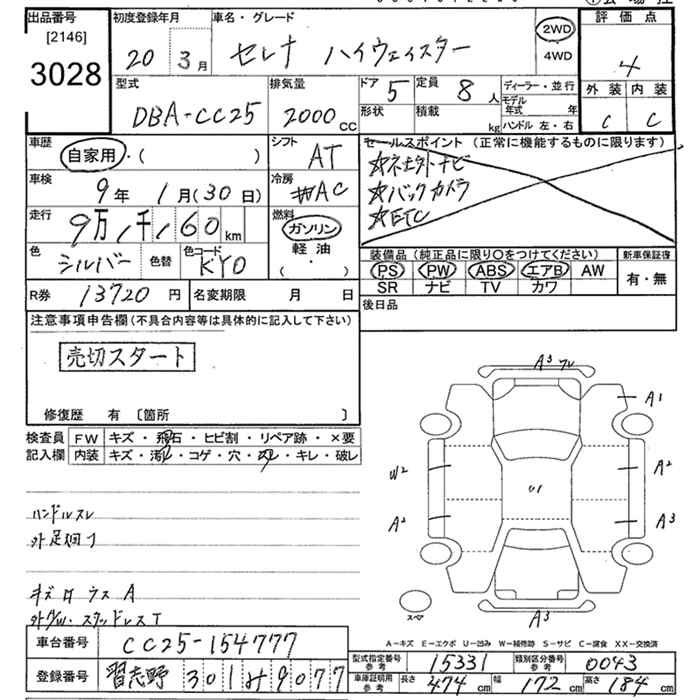 出品番号 初度登録年月 車名・グレード 評価点
[2146] 20 3月 セレナ ハイウェイスター 2WD 4
3028 4WD
型式 排気量 ドア 5 定員 8人 ディーラー・並行 外装 内装
DBA-CC25 2000cc 形状 積載 kg モデル年式 年 C C
ハンドル 左・右
車歴 自家用・( ) シフト AT セールスポイント (正常に機能するものに限ります)
車検 9年 1月(30日) 冷房 AC ☆バックカメラ
走行 9万1千160km 燃料 ガソリン 軽油 ・ ☆ETC
色 シルバー 色替 色コード KY0 装備品(純正品に限り○をつけてください) 新車保証書
PS PW ABS エアB AW 有・無
SR ナビ TV カワ
R券 13720円 名変期限 月 日 後日品
注意事項申告欄(不具合内容等は具体的に記入して下さい)
売切スタート
修復歴 有 〔箇所 〕
検査員 FW キズ・飛石・ヒビ割・リペア跡・×要
記入欄 内装 キズ・汚れ・コゲ・穴・スレ・キレ・破レ
A3
A1
W2 A2
U1
A2 A3
スペア A3
ハンドルスレ
A-キズ E-エクボ U-凹み W-補修跡 S-サビ C-腐食 XX-交換済
車台番号 CC25-154777
型式指定番号参考 15331 類別区分番号参考 0043
登録番号 習志野 301 9077
車庫証明用参考 長さ 474cm 幅 172cm 高さ 184cm